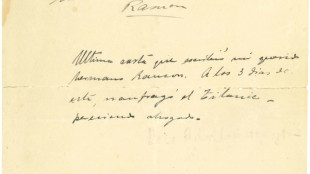 Ramon
Ultima carta que escribió mi querido
hermano Ramon. A los 3 dias de
esta, naufragó el Titanic
pereciendo ahogado.